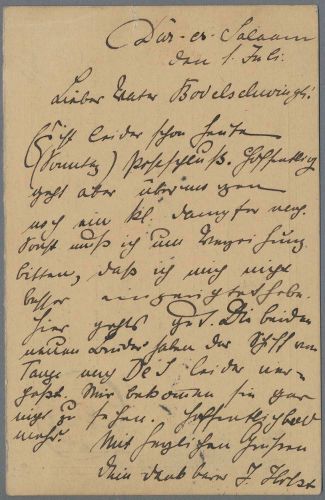 Dar-es-Salaam
den 1. Juli.
Lieber Vater Bodelschwingh!
Es ist leider schon heute
(Sonntag) Postschluß. Hoffentlich
geht aber übermorgen
noch ein kl. Dampfer nach.
Sonst muß ich um Verzeihung
bitten, daß ich mich nicht
besser eingerichtet habe.
Hier gehts gut. Die beiden
neuen Brüder haben das Schiff von
Tanga nach DeS leider ver-
paßt. Wir bekommen sie gar
nicht zu sehen. Hoffentlich bald
mehr.
Mit herzlichen Grüßen
Dein dankbarer J. Holst